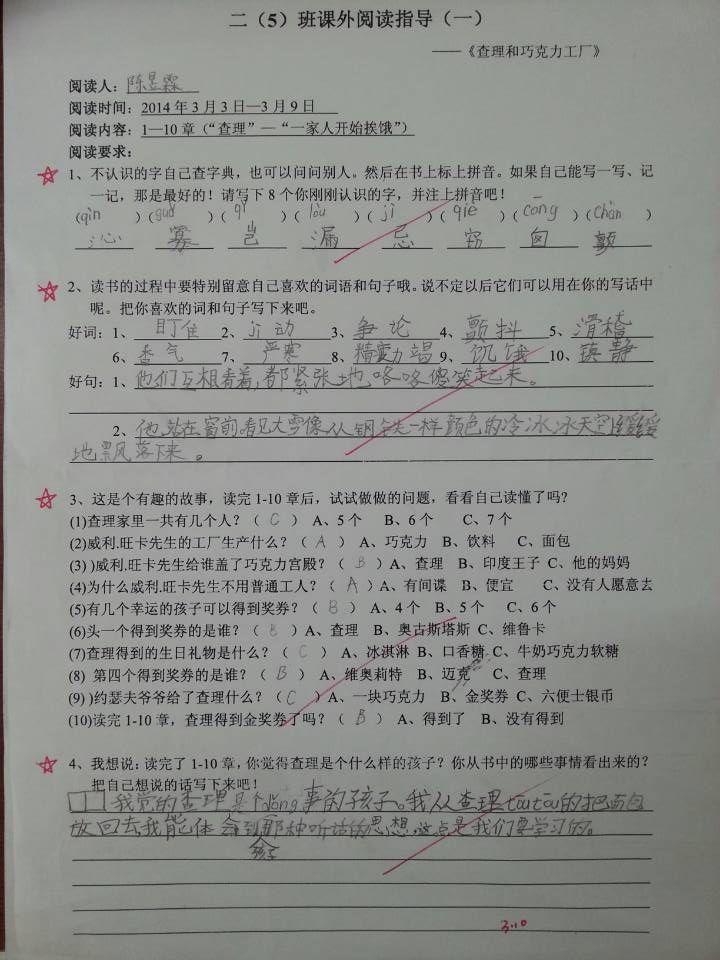 二（5）班课外阅读指导（一）
——《查理和巧克力工厂》
阅读人：陈昱霖
阅读时间：2014年3月3日—3月9日
阅读内容：1—10章（“查理”—“一家人开始挨饿”）
阅读要求：
1、不认识的字自己查字典，也可以问问别人。然后在书上标上拼音。如果自己能写一写、记
一记，那是最好的！请写下8个你刚刚认识的字，并注上拼音吧！
（qìn）（guǎ）（qǐ）（lòu）（jì）（qiè）（cōng）（chàn）
沁 寡 岂 漏 忌 窃 囱 颤
2、读书的过程中要特别留意自己喜欢的词语和句子哦。说不定以后它们可以用在你的写话中
呢。把你喜欢的词和句子写下来吧。
好词：1、盯住 2、jī动 3、争论 4、颤抖 5、滑稽
6、香气 7、严寒 8、精疲力竭 9、饥饿 10、镇静
好句：1、他们互相看着，都紧张地咯咯傻笑起来。
2、他站在窗前看见大雪像从钢铁一样颜色的冷冰冰天空缓缓
地飘落下来。
3、这是个有趣的故事，读完1-10章后，试试做做的问题，看看自己读懂了吗？
(1)查理家里一共有几个人？（ C ） A、5个 B、6个 C、7个
(2)威利.旺卡先生的工厂生产什么？（ A ） A、巧克力 B、饮料 C、面包
(3) )威利.旺卡先生给谁盖了巧克力宫殿？（ B ）A、查理 B、印度王子 C、他的妈妈
(4)为什么威利.旺卡先生不用普通工人？（ A ）A、有间谍 B、便宜 C、没有人愿意去
(5)有几个幸运的孩子可以得到奖券？（ B ） A、4个 B、5个 C、6个
(6)头一个得到奖券的是谁？（ B ）A、查理 B、奥古斯塔斯 C、维鲁卡
(7)查理得到的生日礼物是什么？（ C ） A、冰淇淋 B、口香糖 C、牛奶巧克力软糖
(8) 第四个得到奖券的是谁？（ B ） A、维奥莉特 B、迈克 C、查理
(9) )约瑟夫爷爷给了查理什么？（ C ）A、一块巧克力 B、金奖券 C、六便士银币
(10)读完1-10章，查理得到金奖券了吗？（ B ） A、得到了 B、没有得到
4、我想说：读完了1-10章，你觉得查理是个什么样的孩子？你从书中的哪些事情看出来的？
把自己想说的话写下来吧！
我觉的查理是个dǒng事的孩子。我从查理tōutōu的把面包
放回去我能体会到那种听话的思想，这点是我们要学习的。
3.10